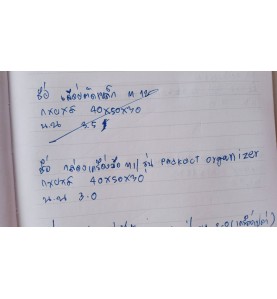 ชื่อ เครื่องตัดเหล็ก M-12
กxยxส 40x50x30
น.น 3.5
ชื่อ กล่องเครื่องมือ M1/รุ่น Packout organizer
กxยxส 40x50x30
น.น 3.0